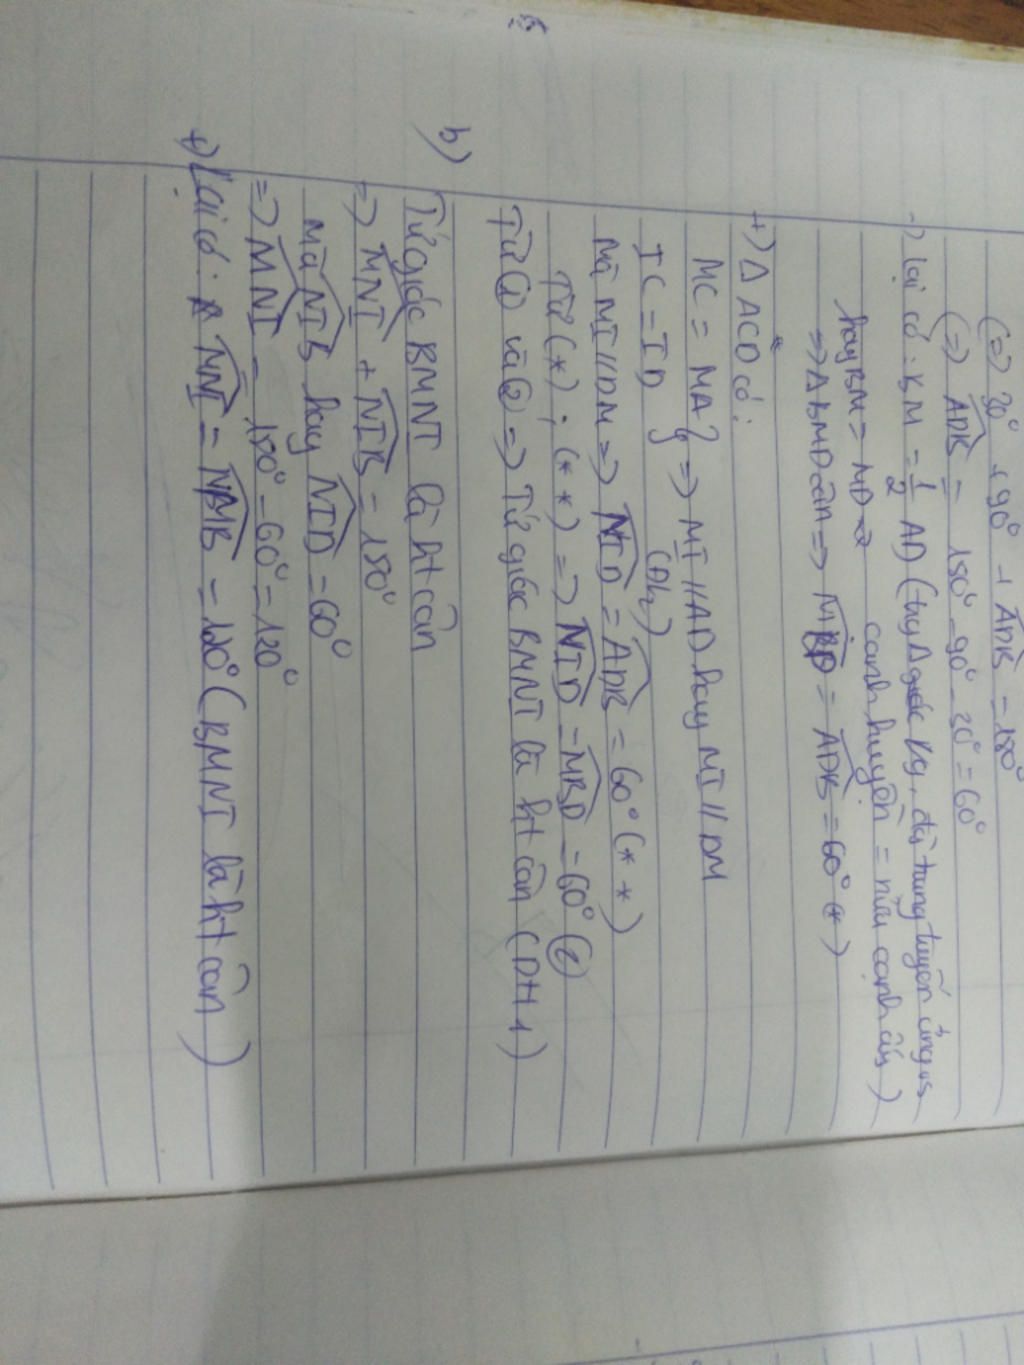 (=) 30° + 90° + ADB = 180°
(=) ADB = 180° - 90° - 30° = 60°
-) lại có : BM = 1/2 AD (tg Δ giác vg, đg trung tuyến ứng vs
cạnh huyền = nửa cạnh ấy)
hay BM = MD
=> Δ BMD cân => MBD = ADB = 60° (*)
+) Δ ACD có :
MC = MA } => MI // AD hay MI // DM
IC = ID (Dh2)
Mà MI // DM => NID = ADB = 60° (**)
Từ (*) ; (**) => NID = MBD = 60° (2)
Từ (1) và (2) => Tứ giác BMNI là ht cân (DH 1)
b)
Tứ giác BMNI là ht cân
=> MNI + NIB = 180°
Mà NIB hay NID = 60°
=> MNI = 180° - 60° = 120°
+) Lại có : MNI = NMB = 120° (BMNI là ht cân)